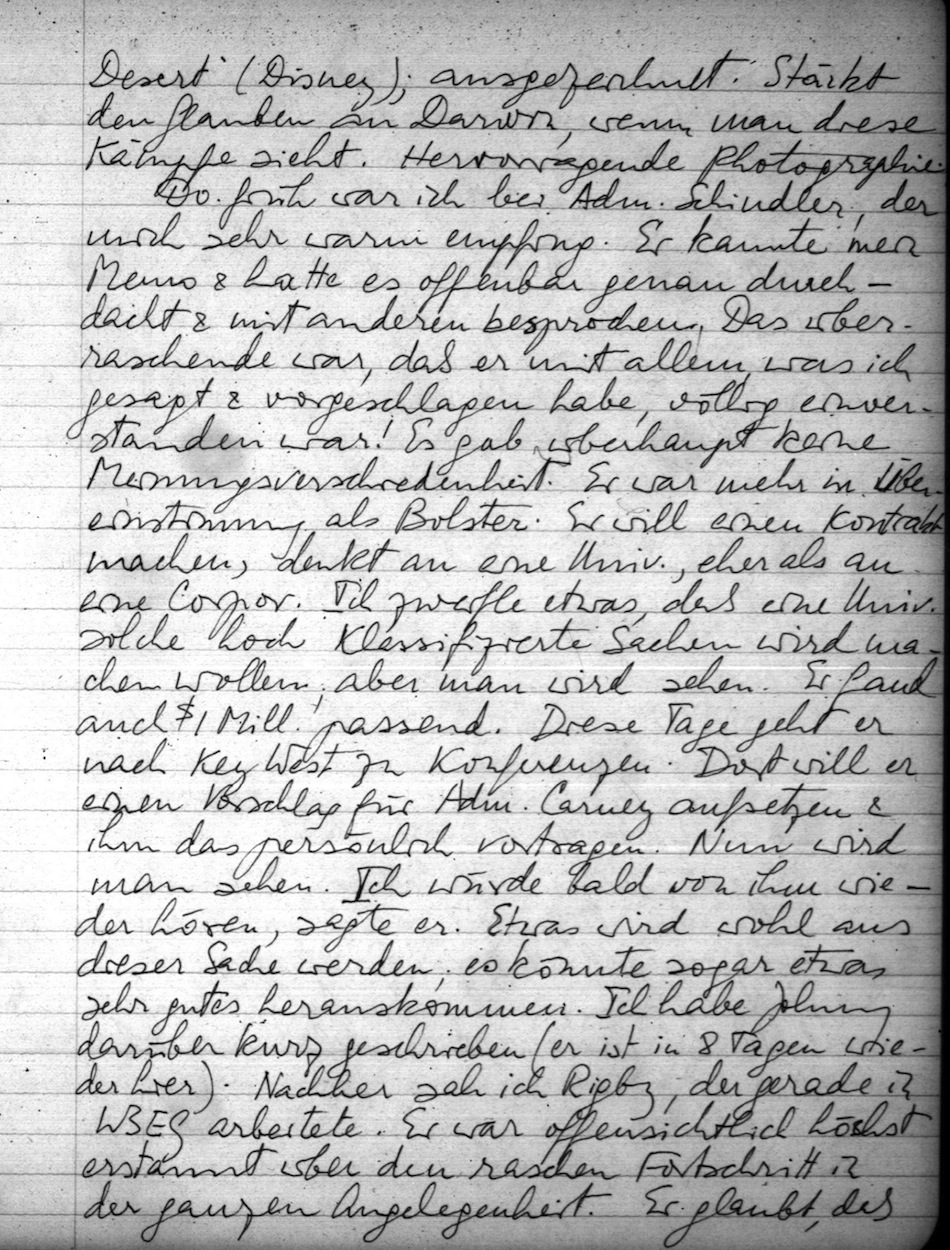 Desert" (Disney); ausgezeichnet. Stärkt
den Glauben an Darwin, wenn man diese
Kämpfe sieht. Hervorragende Photographie
Do. früh war ich bei Adm. Schindler, der
mich sehr warm empfing. Er kannte mein
Memo & hatte es offenbar genau durch-
dacht & mit anderen besprochen. Das über-
raschende war, daß er mit allem, was ich
gesagt & vorgeschlagen habe, völlig einver-
standen war! Es gab überhaupt keine
Meinungsverschiedenheit. Er war mehr in Über-
einstimmung als Bolster. Er will einen Kontrakt
machen, denkt an eine Univ., eher als an
eine Corpor. Ich zweifle etwas, daß eine Univ.
solche hoch klassifizierte Sachen wird ma-
chen wollen, aber man wird sehen. Er fand
auch $1 Mill. passend. Diese Tage geht er
nach Key West zu Konferenzen. Dort will er
einen Vorschlag für Adm. Carney aufsetzen &
ihm das persönlich vortragen. Nun wird
man sehen. Ich würde bald von ihm wie-
der hören, sagte er. Etwas wird wohl aus
dieser Sache werden, es könnte sogar etwas
sehr gutes herauskommen. Ich habe Johnny
darüber kurz geschrieben (er ist in 8 Tagen wie-
der hier). Nachher sah ich Rigby, der gerade in
WSEG arbeitete. Er war offensichtlich höchst
erstaunt über den raschen Fortschritt in
der ganzen Angelegenheit. Er glaubt, daß